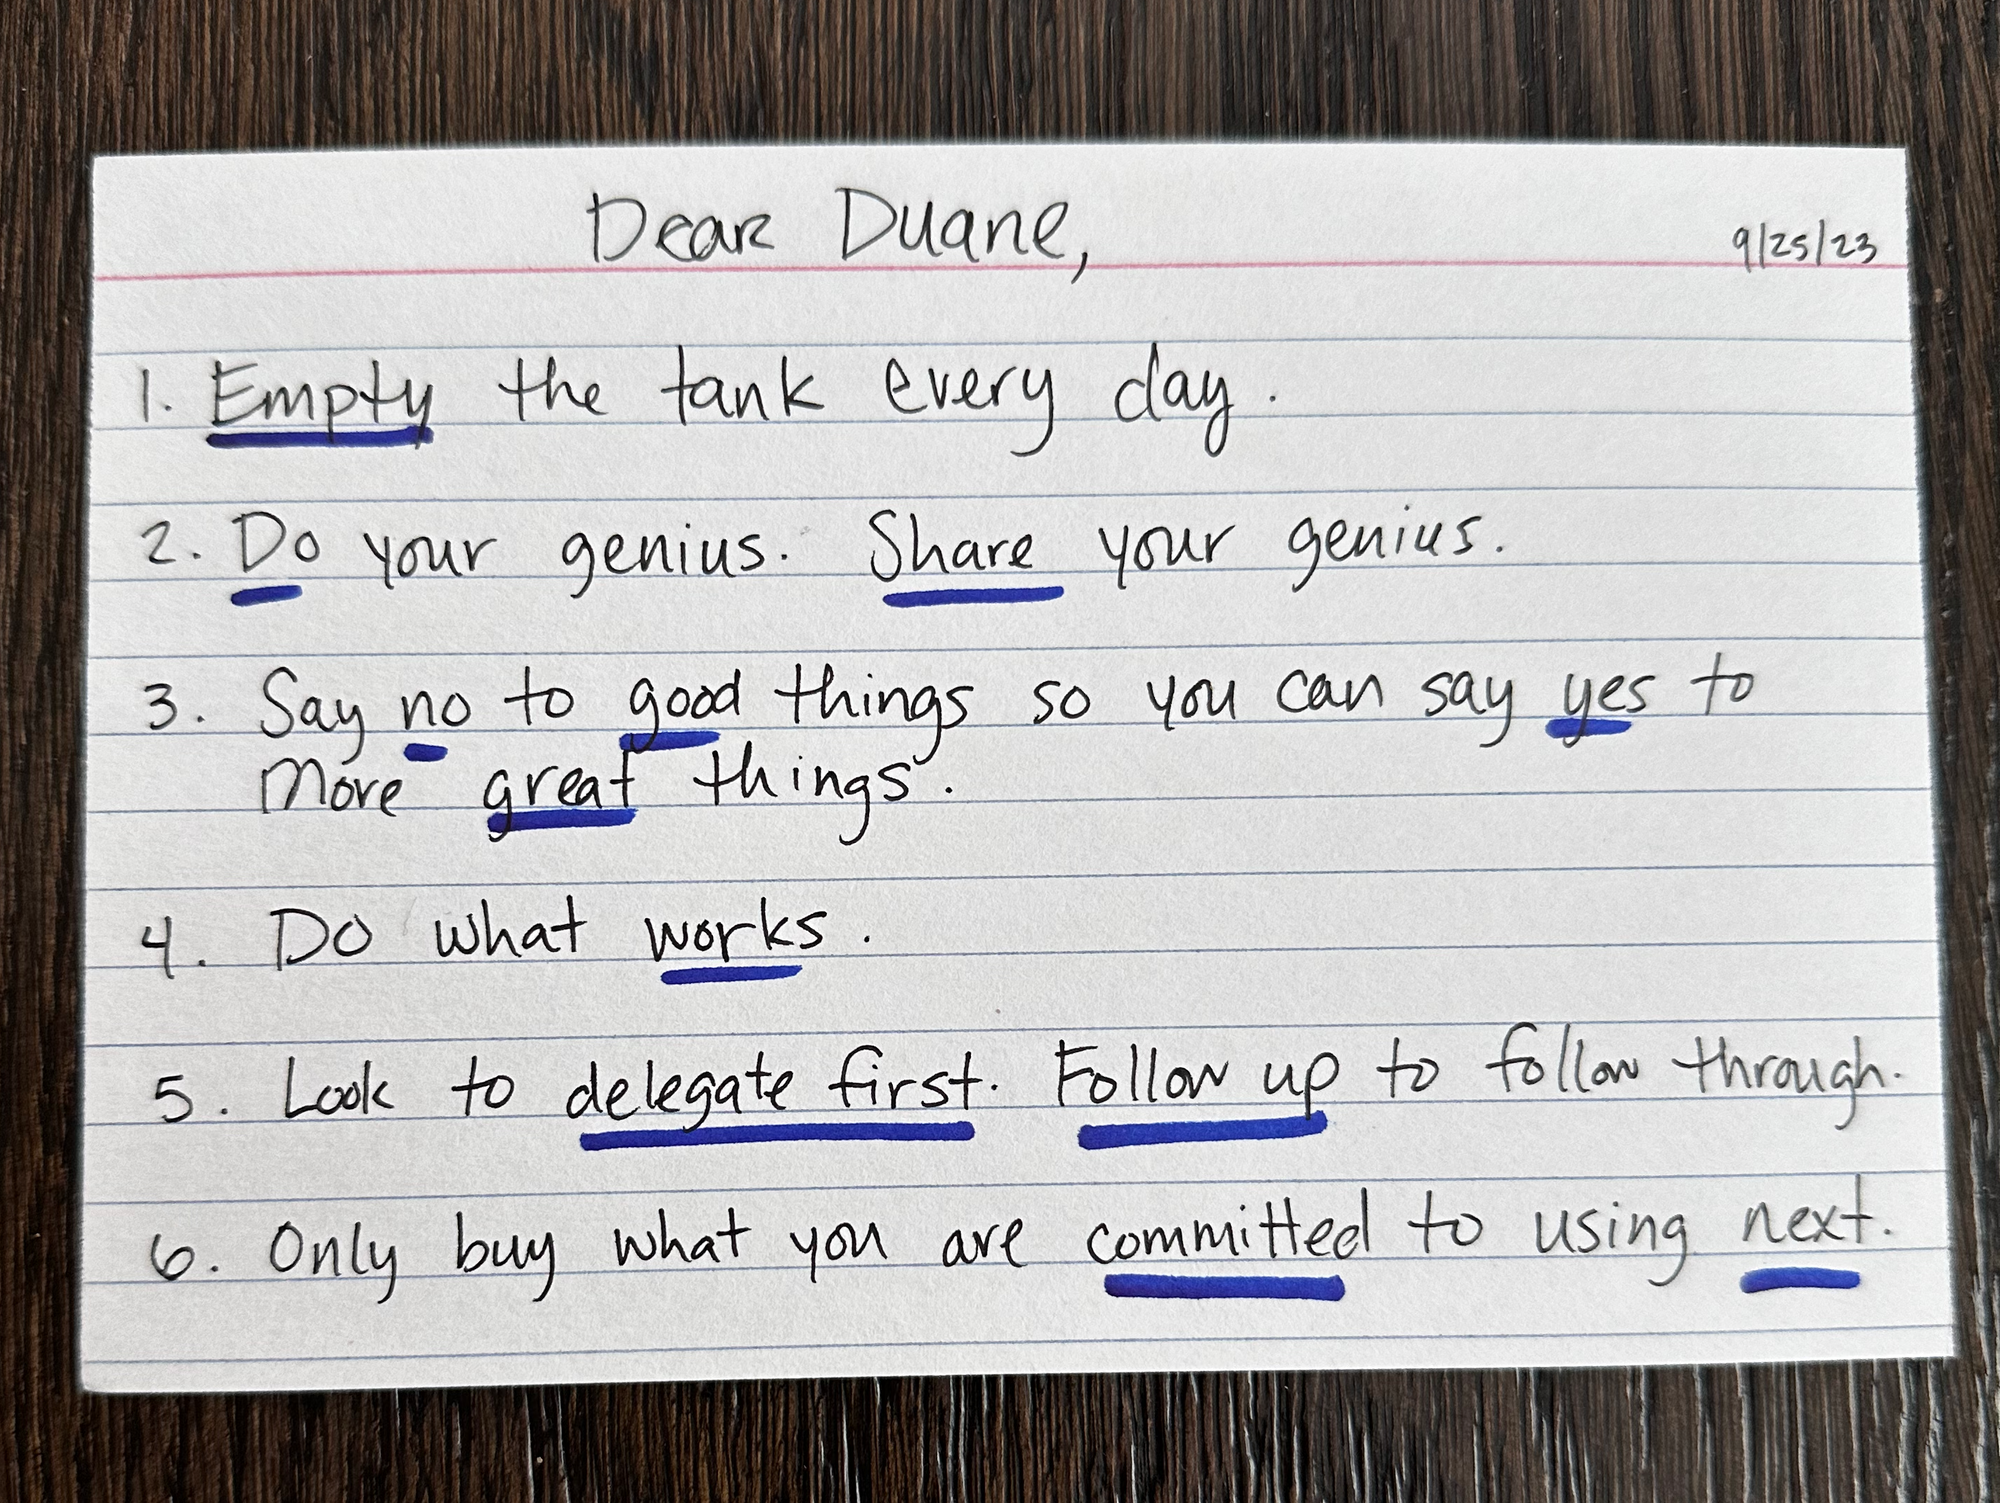 Dear Duane,
9/25/23
1. Empty the tank every day.
2. Do your genius. Share your genius.
3. Say no to good things so you can say yes to
more great things.
4. Do what works.
5. Look to delegate first. Follow up to follow through.
6. Only buy what you are committed to using next.